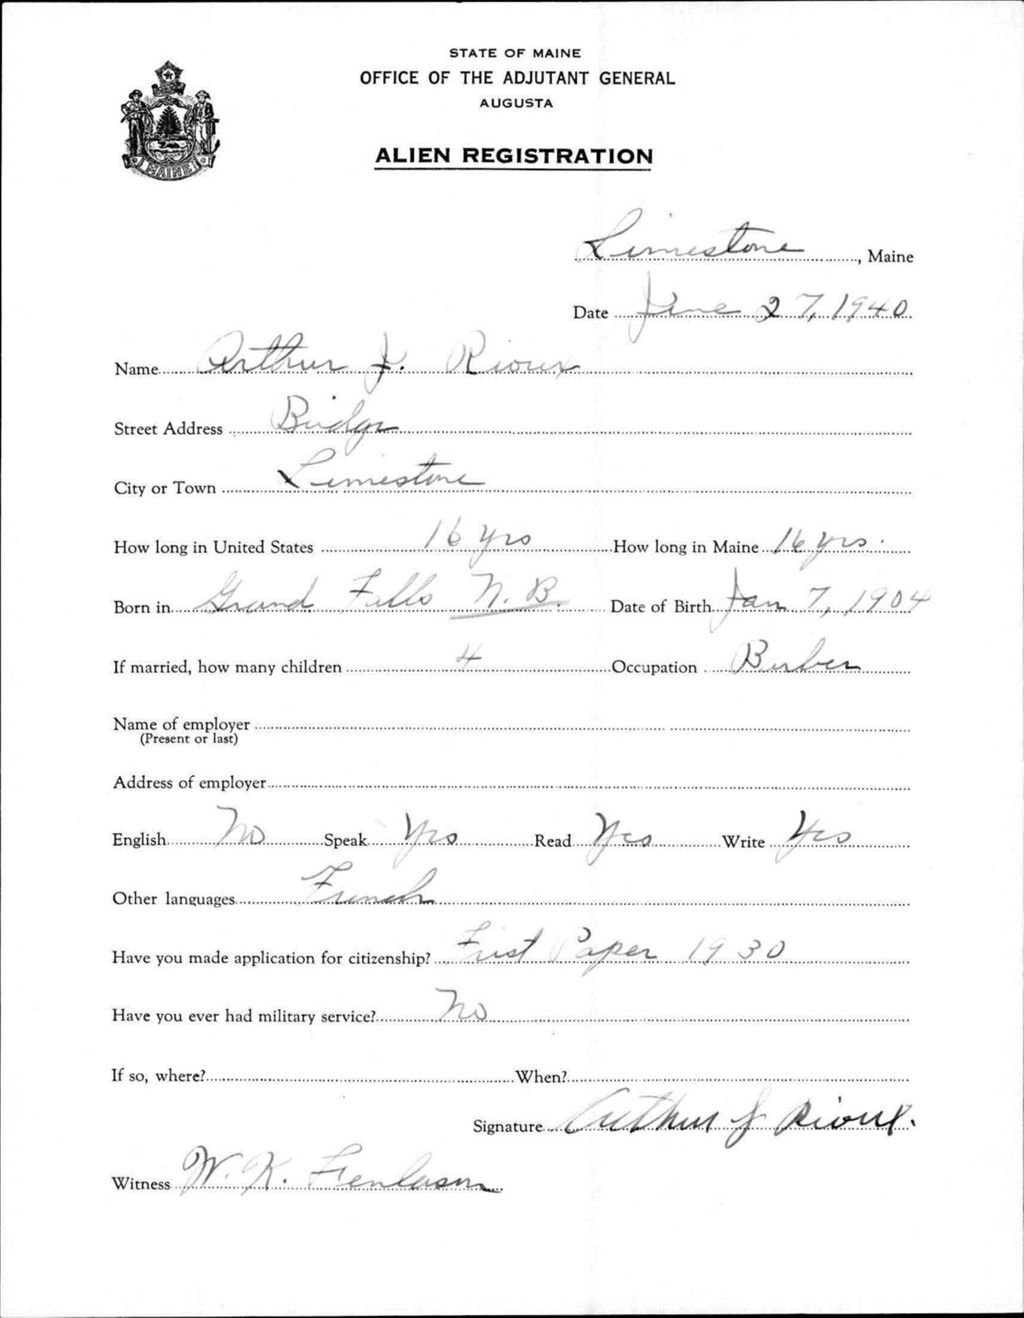 STATE OF MAINE
OFFICE OF THE ADJUTANT GENERAL
AUGUSTA
ALIEN REGISTRATION
MAINE
Limestone, Maine
Date June 27, 1940
Name Arthur J. Rioux
Street Address Bridge
City or Town Limestone
How long in United States 16 yrs How long in Maine 16 yrs.
Born in Grand Falls N.B. Date of Birth Jan 7, 1904
If married, how many children 4 Occupation Barber
Name of employer
(Present or last)
Address of employer
English No Speak Yes Read Yes Write Yes
Other languages French
Have you made application for citizenship? First Paper 1930
Have you ever had military service? No
If so, where? When?
Signature Arthur J Rioux.
Witness W. K. Fenlason